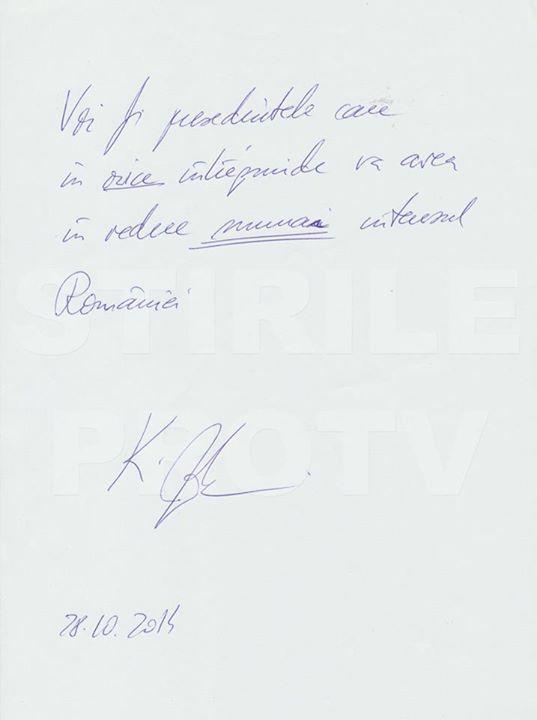 Voi fi presedintele care
în orice întreprinde va avea
în vedere numai interesul
României
STIRILE
PROTV
K.
28.10.2014